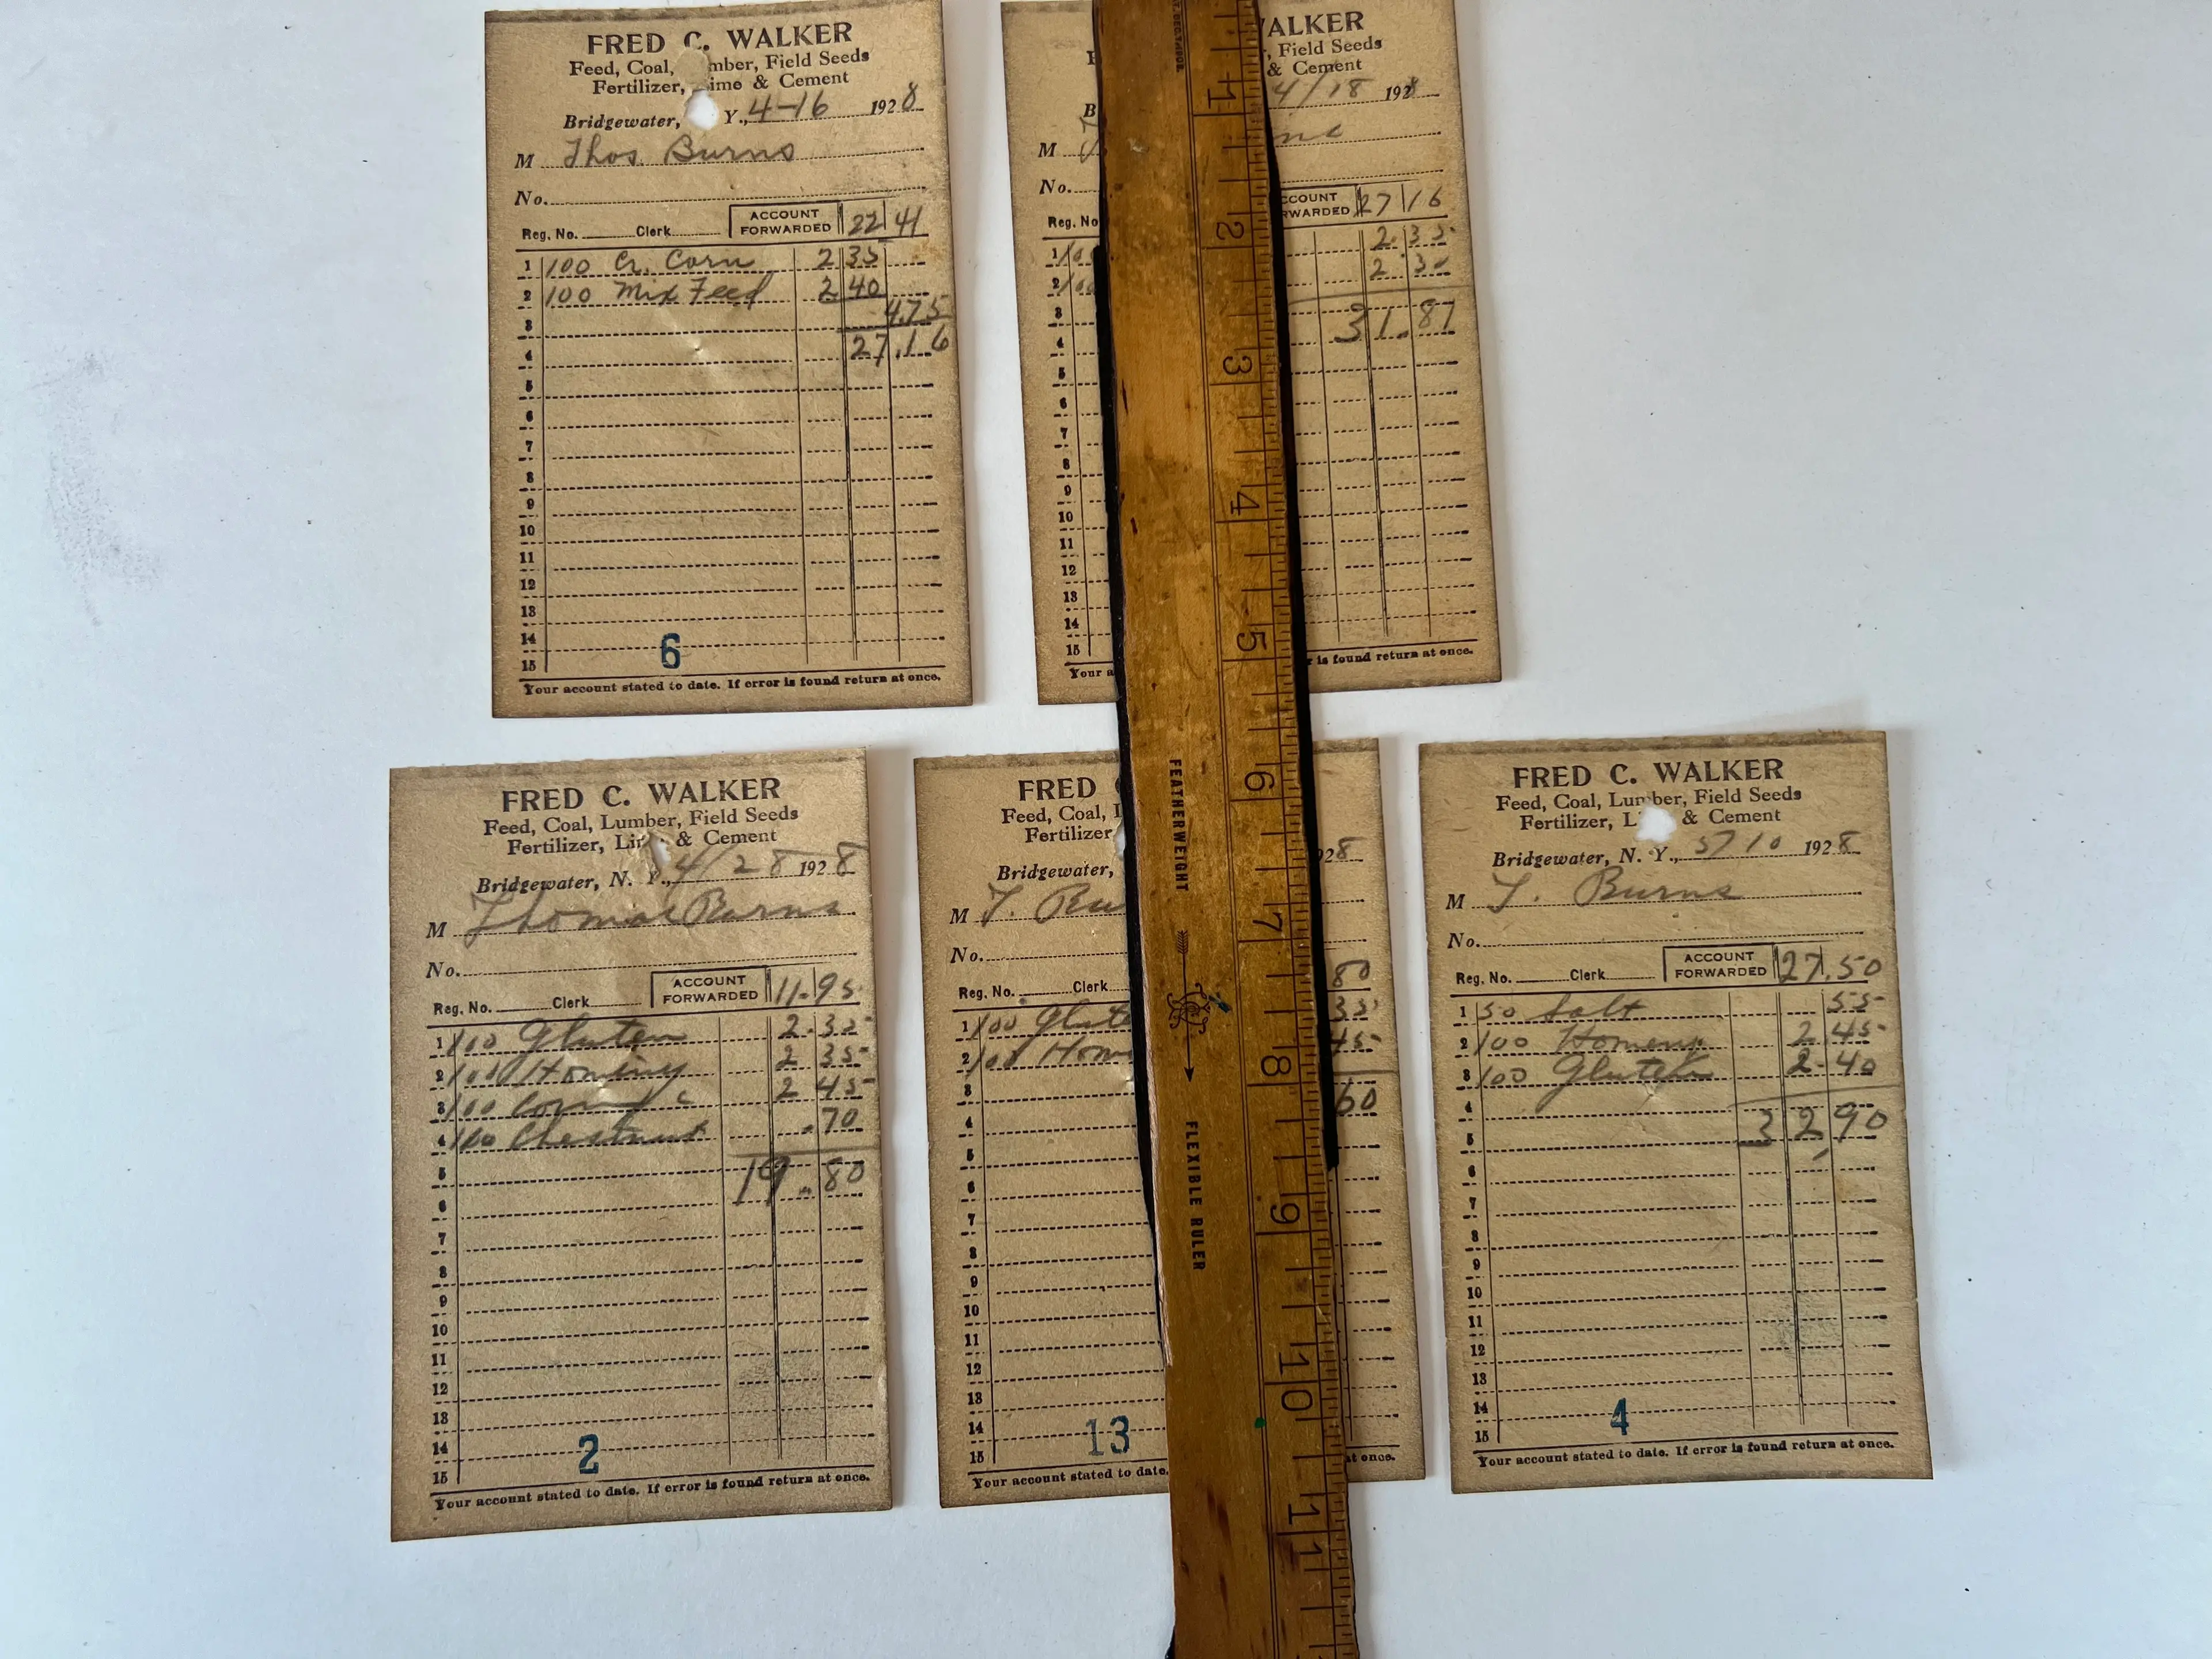 FRED C. WALKER
Feed, Coal, mber, Field Seeds
Fertilizer, ime & Cement
Bridgewater, Y., 4-16 1928
M Thos Burns
No.
Reg. No. Clerk ACCOUNT FORWARDED 22 41
1 100 Cr. Corn 2 35
2 100 Mix Feed 2 40
3 4.75
4 27.16
5
6
7
8
9
10
11
12
13
14
15
6
Your account stated to date. If error is found return at once.
ALKER
, Field Seeds
& Cement
B 4/18 1928
M
No.
Reg. No CCOUNT RWARDED 27 16
1 100 2.35
2 100 2.3
3 31.87
4
5
6
7
8
9
10
11
12
13
14
15
Your a r is found return at once.
FRED C. WALKER
Feed, Coal, Lumber, Field Seeds
Fertilizer, Li & Cement
Bridgewater, N. Y., 4/28 1928
M Thomas Burns
No.
Reg. No. Clerk ACCOUNT FORWARDED 11.95
1 100 Gluten 2.35
2 100 Hominy 2 35
3 100 Corn 2 45
4 100 Chestnut .70
5 19.80
6
7
8
9
10
11
12
13
14
15
2
Your account stated to date. If error is found return at once.
FRED
Feed, Coal, L
Fertilizer
Bridgewater, 928
M T. Bu
No.
Reg. No. Clerk 80
1 100 Glute 35
2 100 Hom 45
3 60
4
5
6
7
8
9
10
11
12
13
14
15
13
Your account stated to date. at once.
FRED C. WALKER
Feed, Coal, Lumber, Field Seeds
Fertilizer, L & Cement
Bridgewater, N. Y., 5/10 1928
M T. Burns
No.
Reg. No. Clerk ACCOUNT FORWARDED 27.50
1 50 Salt 55
2 100 Hominy 2 45
3 100 Gluten 2.40
4 32 90
5
6
7
8
9
10
11
12
13
14
15
4
Your account stated to date. If error is found return at once.
1
2
3
4
5
6
7
8
9
10
11
FEATHERWEIGHT
FLEXIBLE RULER